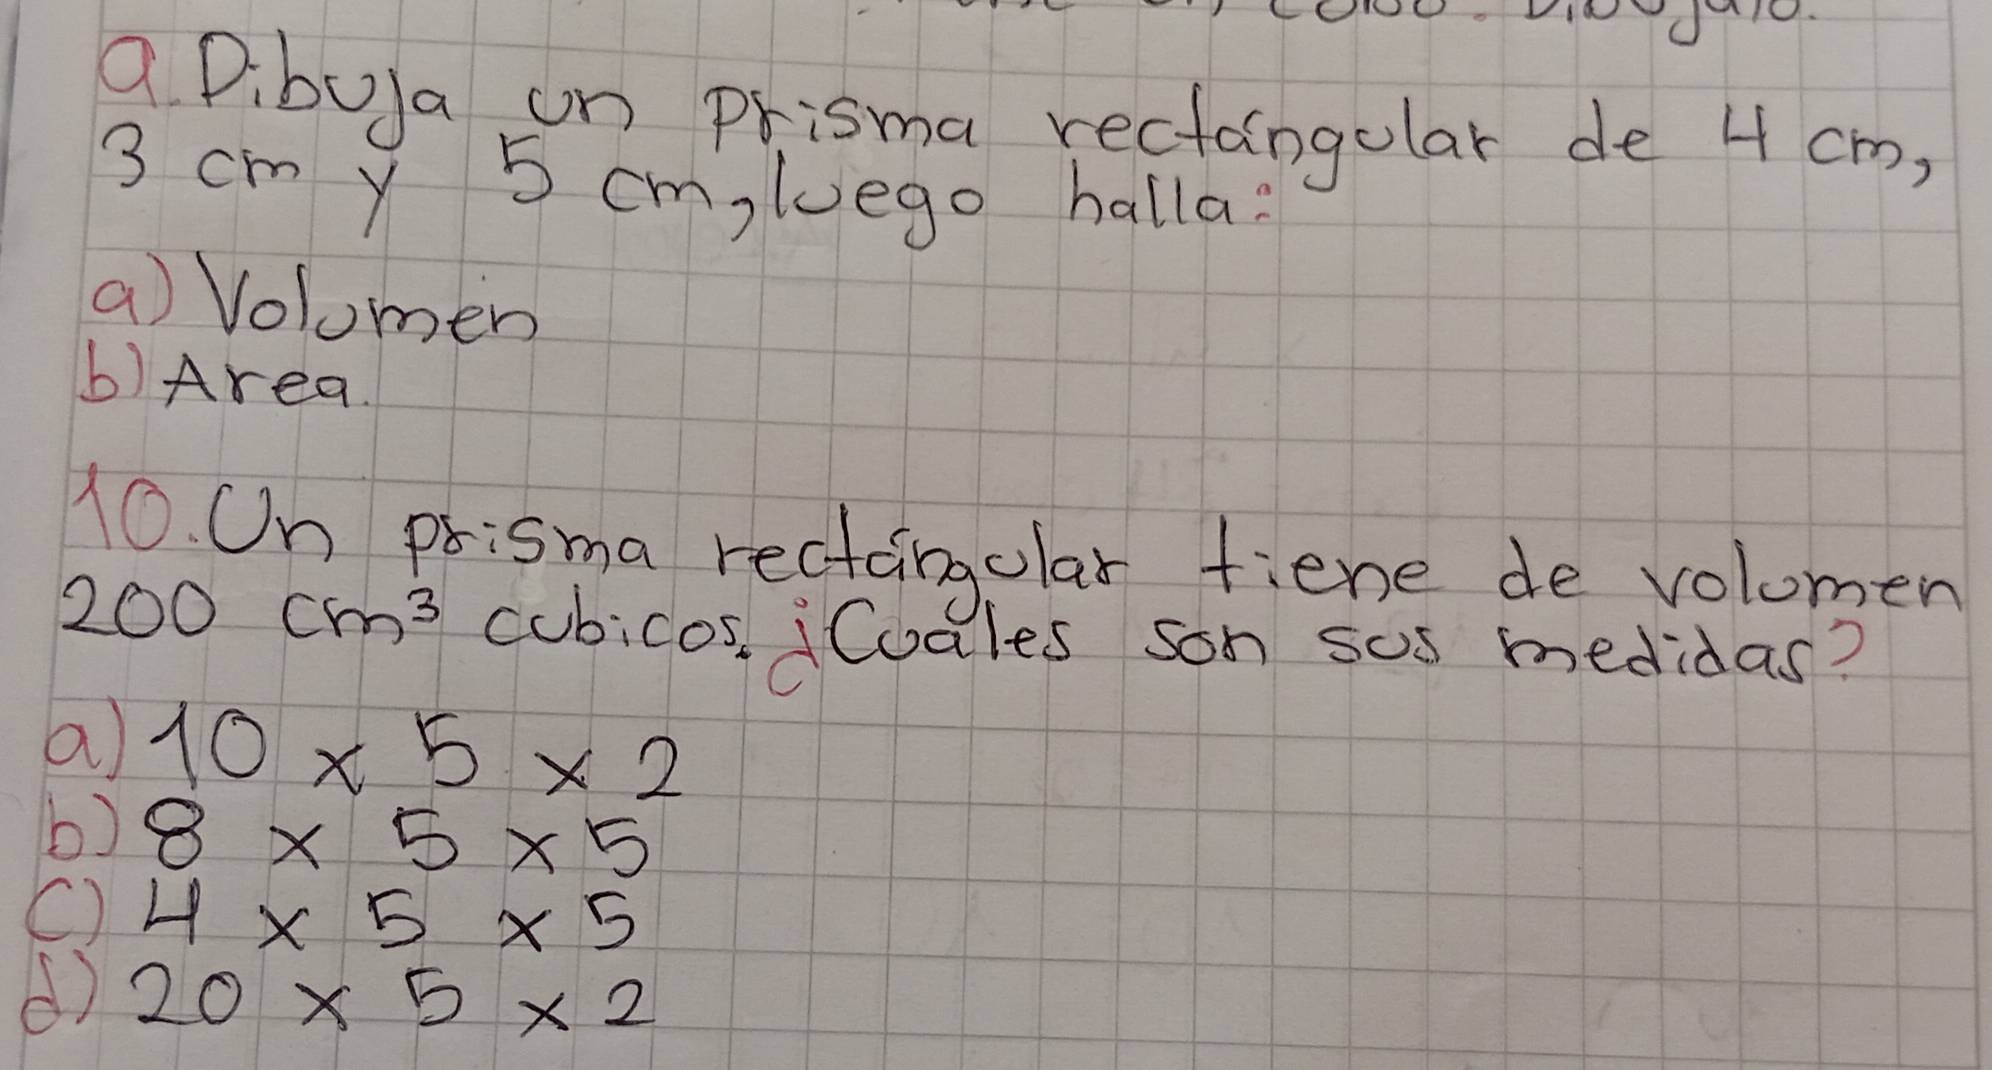 9. Dibuja un prisma rectángular de 4 cm,
3 cm y 5 cm, luego halla:
a) Volumen
b) Area.
10. Un prisma rectángular tiene de volumen
200 cm³ cubicos. ¿Cuáles son sus medidas?
a) 10 x 5 x 2
b) 8 x 5 x 5
c) 4 x 5 x 5
d) 20 x 5 x 2